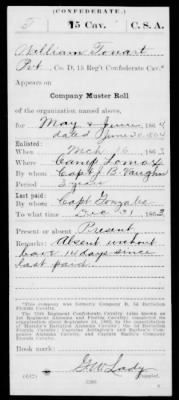 (CONFEDERATE.)
T 15 Cav. C. S. A.
William Touart
Pvt, Co. D, 15 Reg't Confederate Cav.*
Appears on
Company Muster Roll
of the organization named above,
for May & June, 1864
dated June 30, 1864
Enlisted:
When Mch 16, 1863
Where Camp Lomax
By whom Capt J. B. Vaughn
Period 3 years
Last paid:
By whom Capt Gonzales
To what time Dec 31, 1863
Present or absent Present
Remarks: Absent without
leave 14 days since
last paid.
Book mark:
G. W. Lady
(642) Copyist.